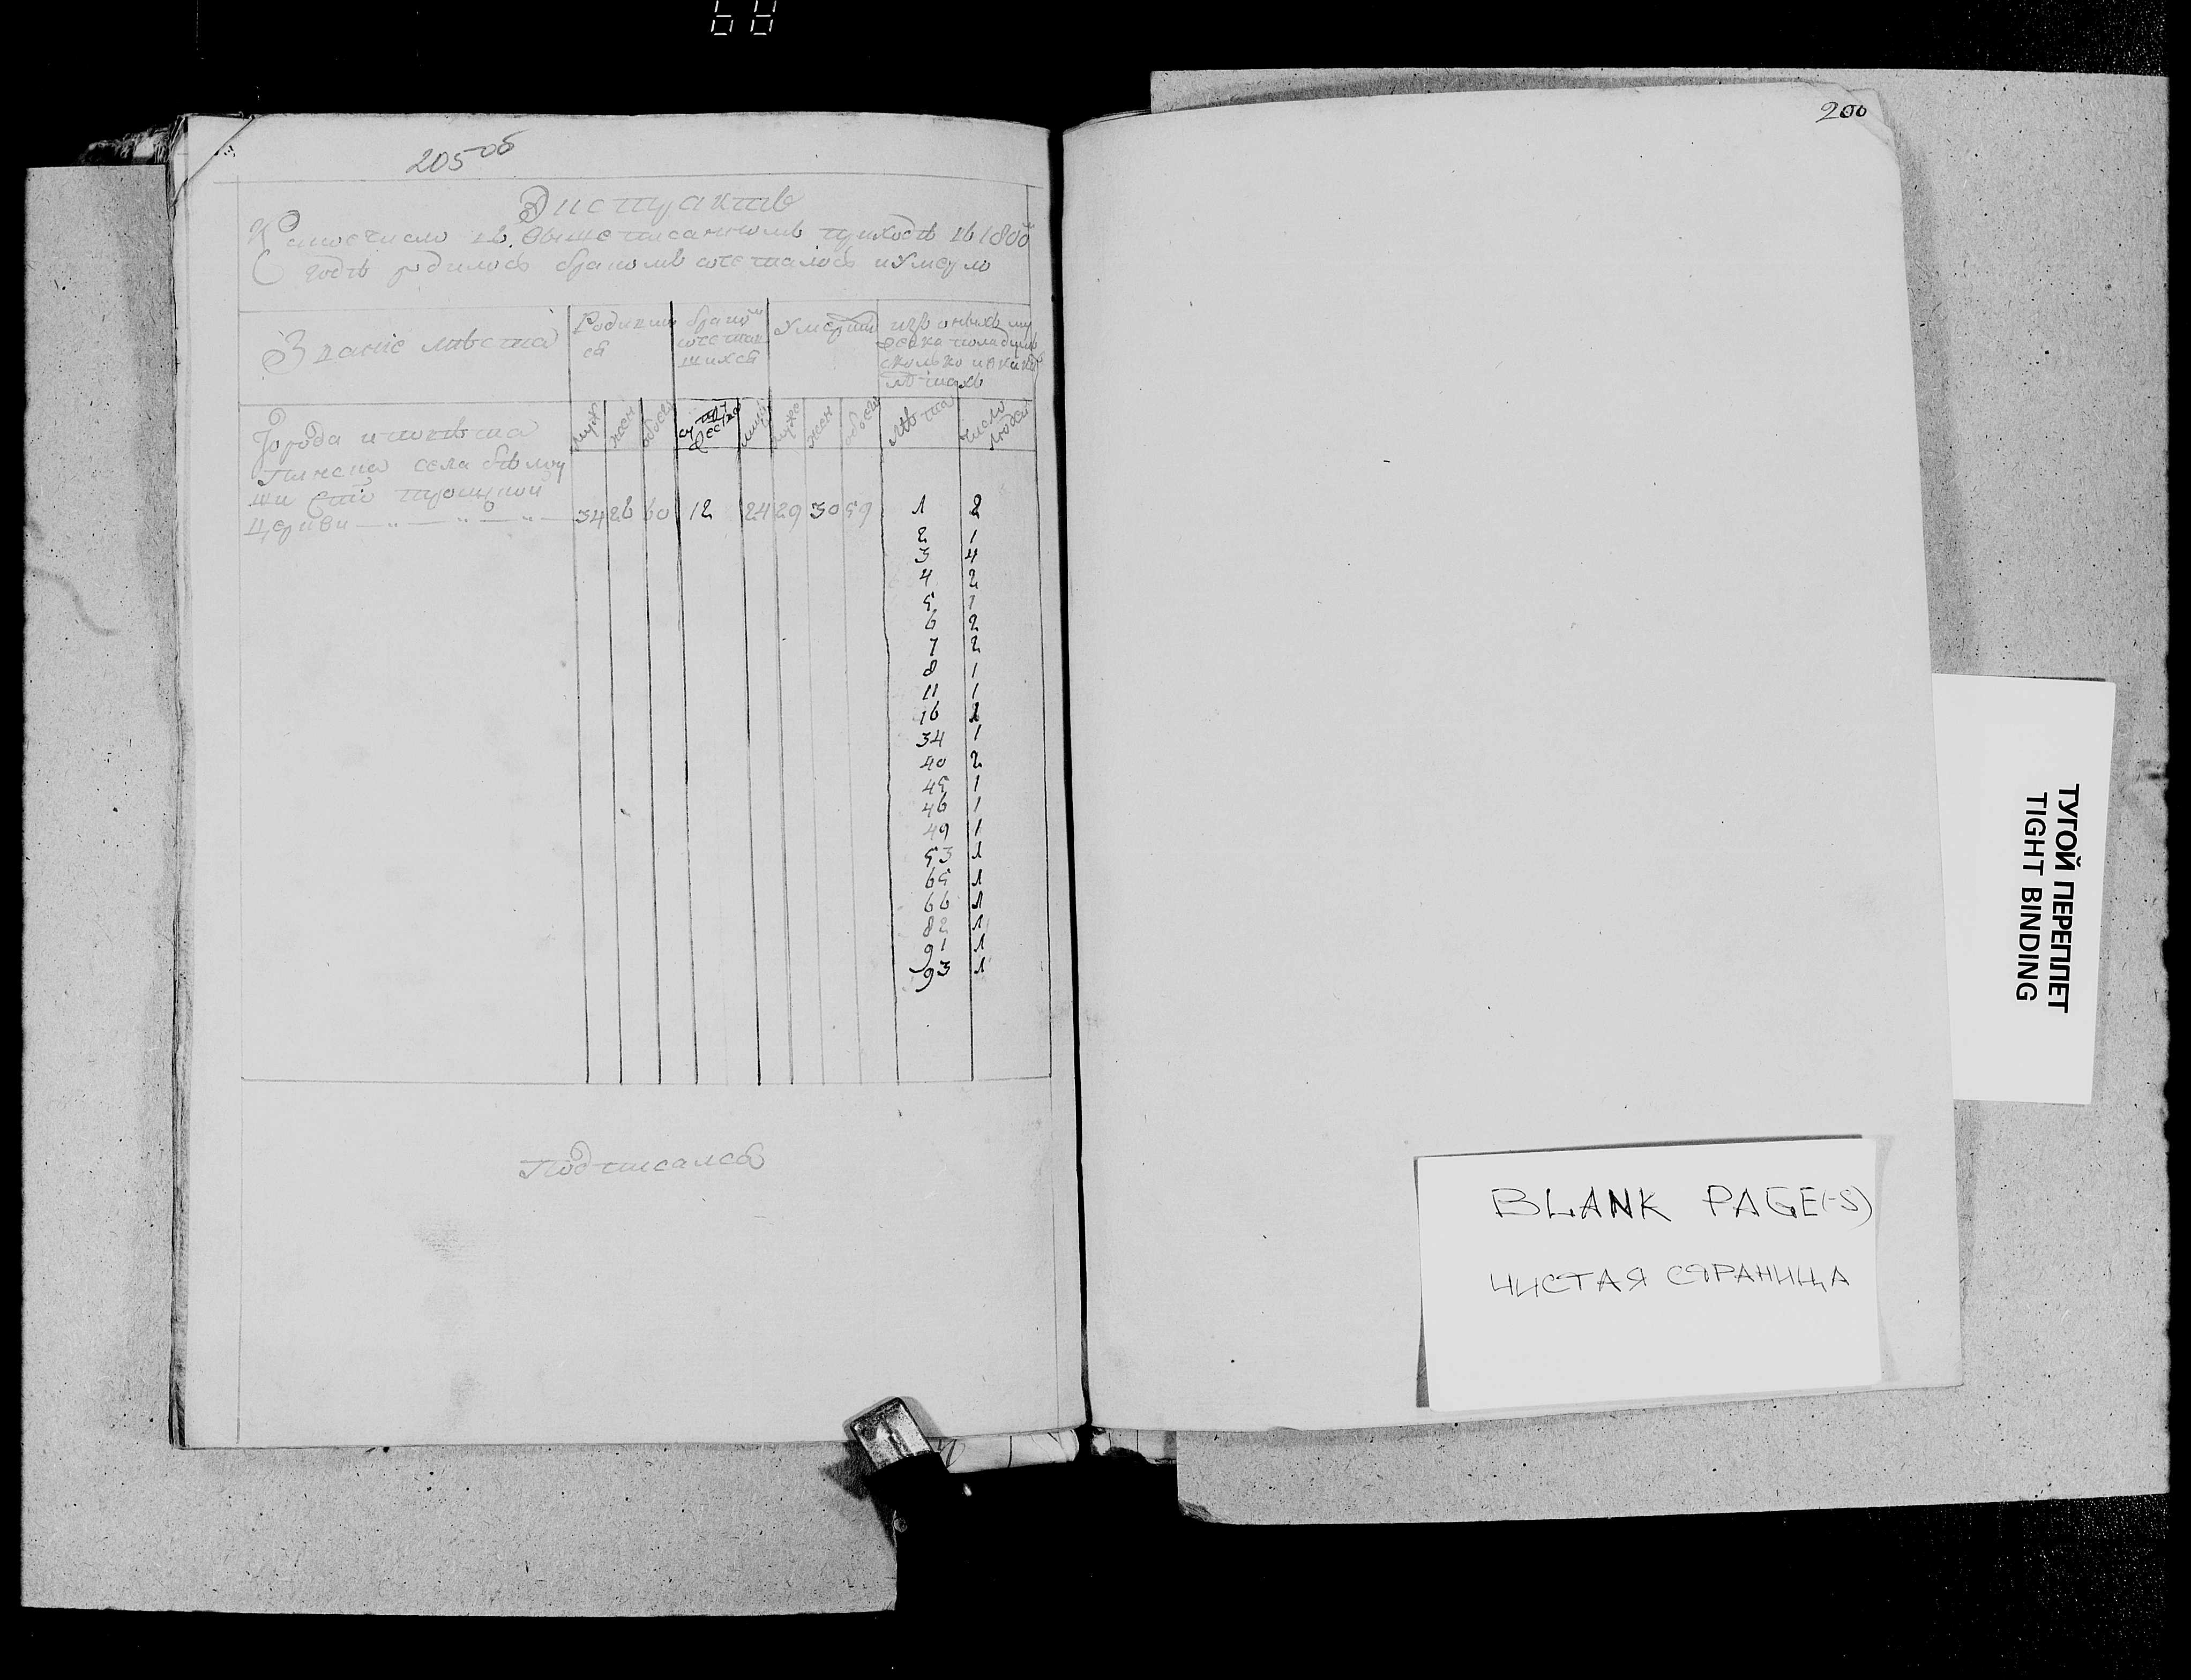 68
205 об
Экстрактъ
Коликое число въ вышеписанномъ приходѣ въ 180
годѣ родилось бракомъ сочеталось и умерло
Званіе мѣста
Родивши
ся
бракомъ
сочетав
шихся
Умерши
изъ оныхъ му
жеска пола
сколько и в какихъ
лѣтахъ
муж
жен
обоего
супру
жества
лицъ
муж
жен
обоего
лѣта
число
людей
Города и повѣта
Пинска села
ши Сто Троицкой
Церкви 34 26 60 12 24 29 30 59 1 2
2 1
3 4
4 2
5 1
6 2
7 2
8 1
11 1
16 1
34 1
40 2
45 1
46 1
49 1
53 1
65 1
66 1
82 1
91 1
93 1
Подписался
200
ТУГОЙ ПЕРЕПЛЕТ
TIGHT BINDING
BLANK PAGE(-S)
ЧИСТАЯ СТРАНИЦА